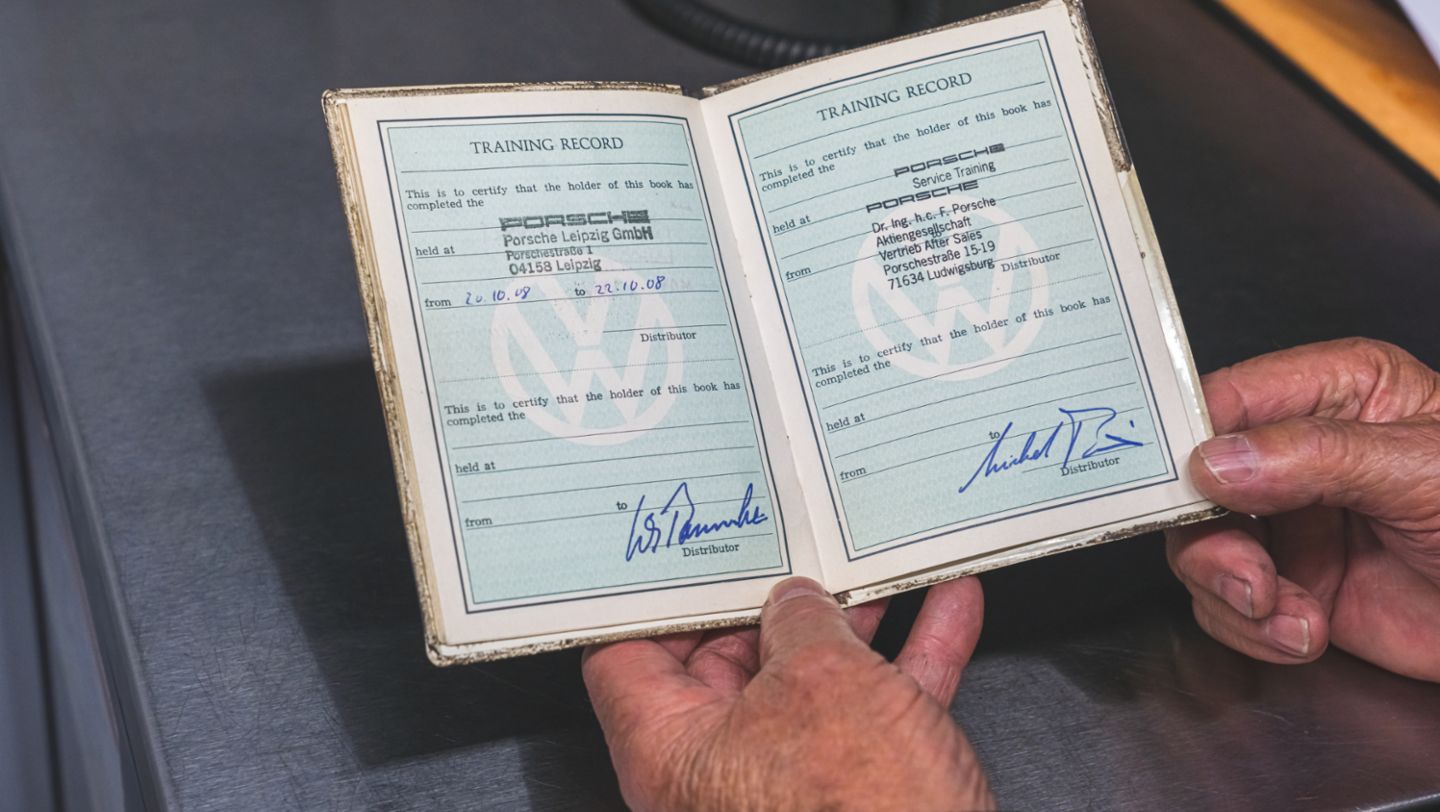 TRAINING RECORD
This is to certify that the holder of this book has
completed the
PORSCHE
Porsche Leipzig GmbH
held at
Porschestraße 1
04158 Leipzig
from 20.10.08 to 22.10.08
Distributor
This is to certify that the holder of this book has
completed the
held at
from to
Distributor
TRAINING RECORD
This is to certify that the holder of this book has
completed the
PORSCHE
Service Training
PORSCHE
held at
Dr. Ing. h.c. F. Porsche
Aktiengesellschaft
to
from
Vertrieb After Sales
Porschestraße 15-19
71634 Ludwigsburg
Distributor
This is to certify that the holder of this book has
completed the
held at
from to
Michel
Distributor